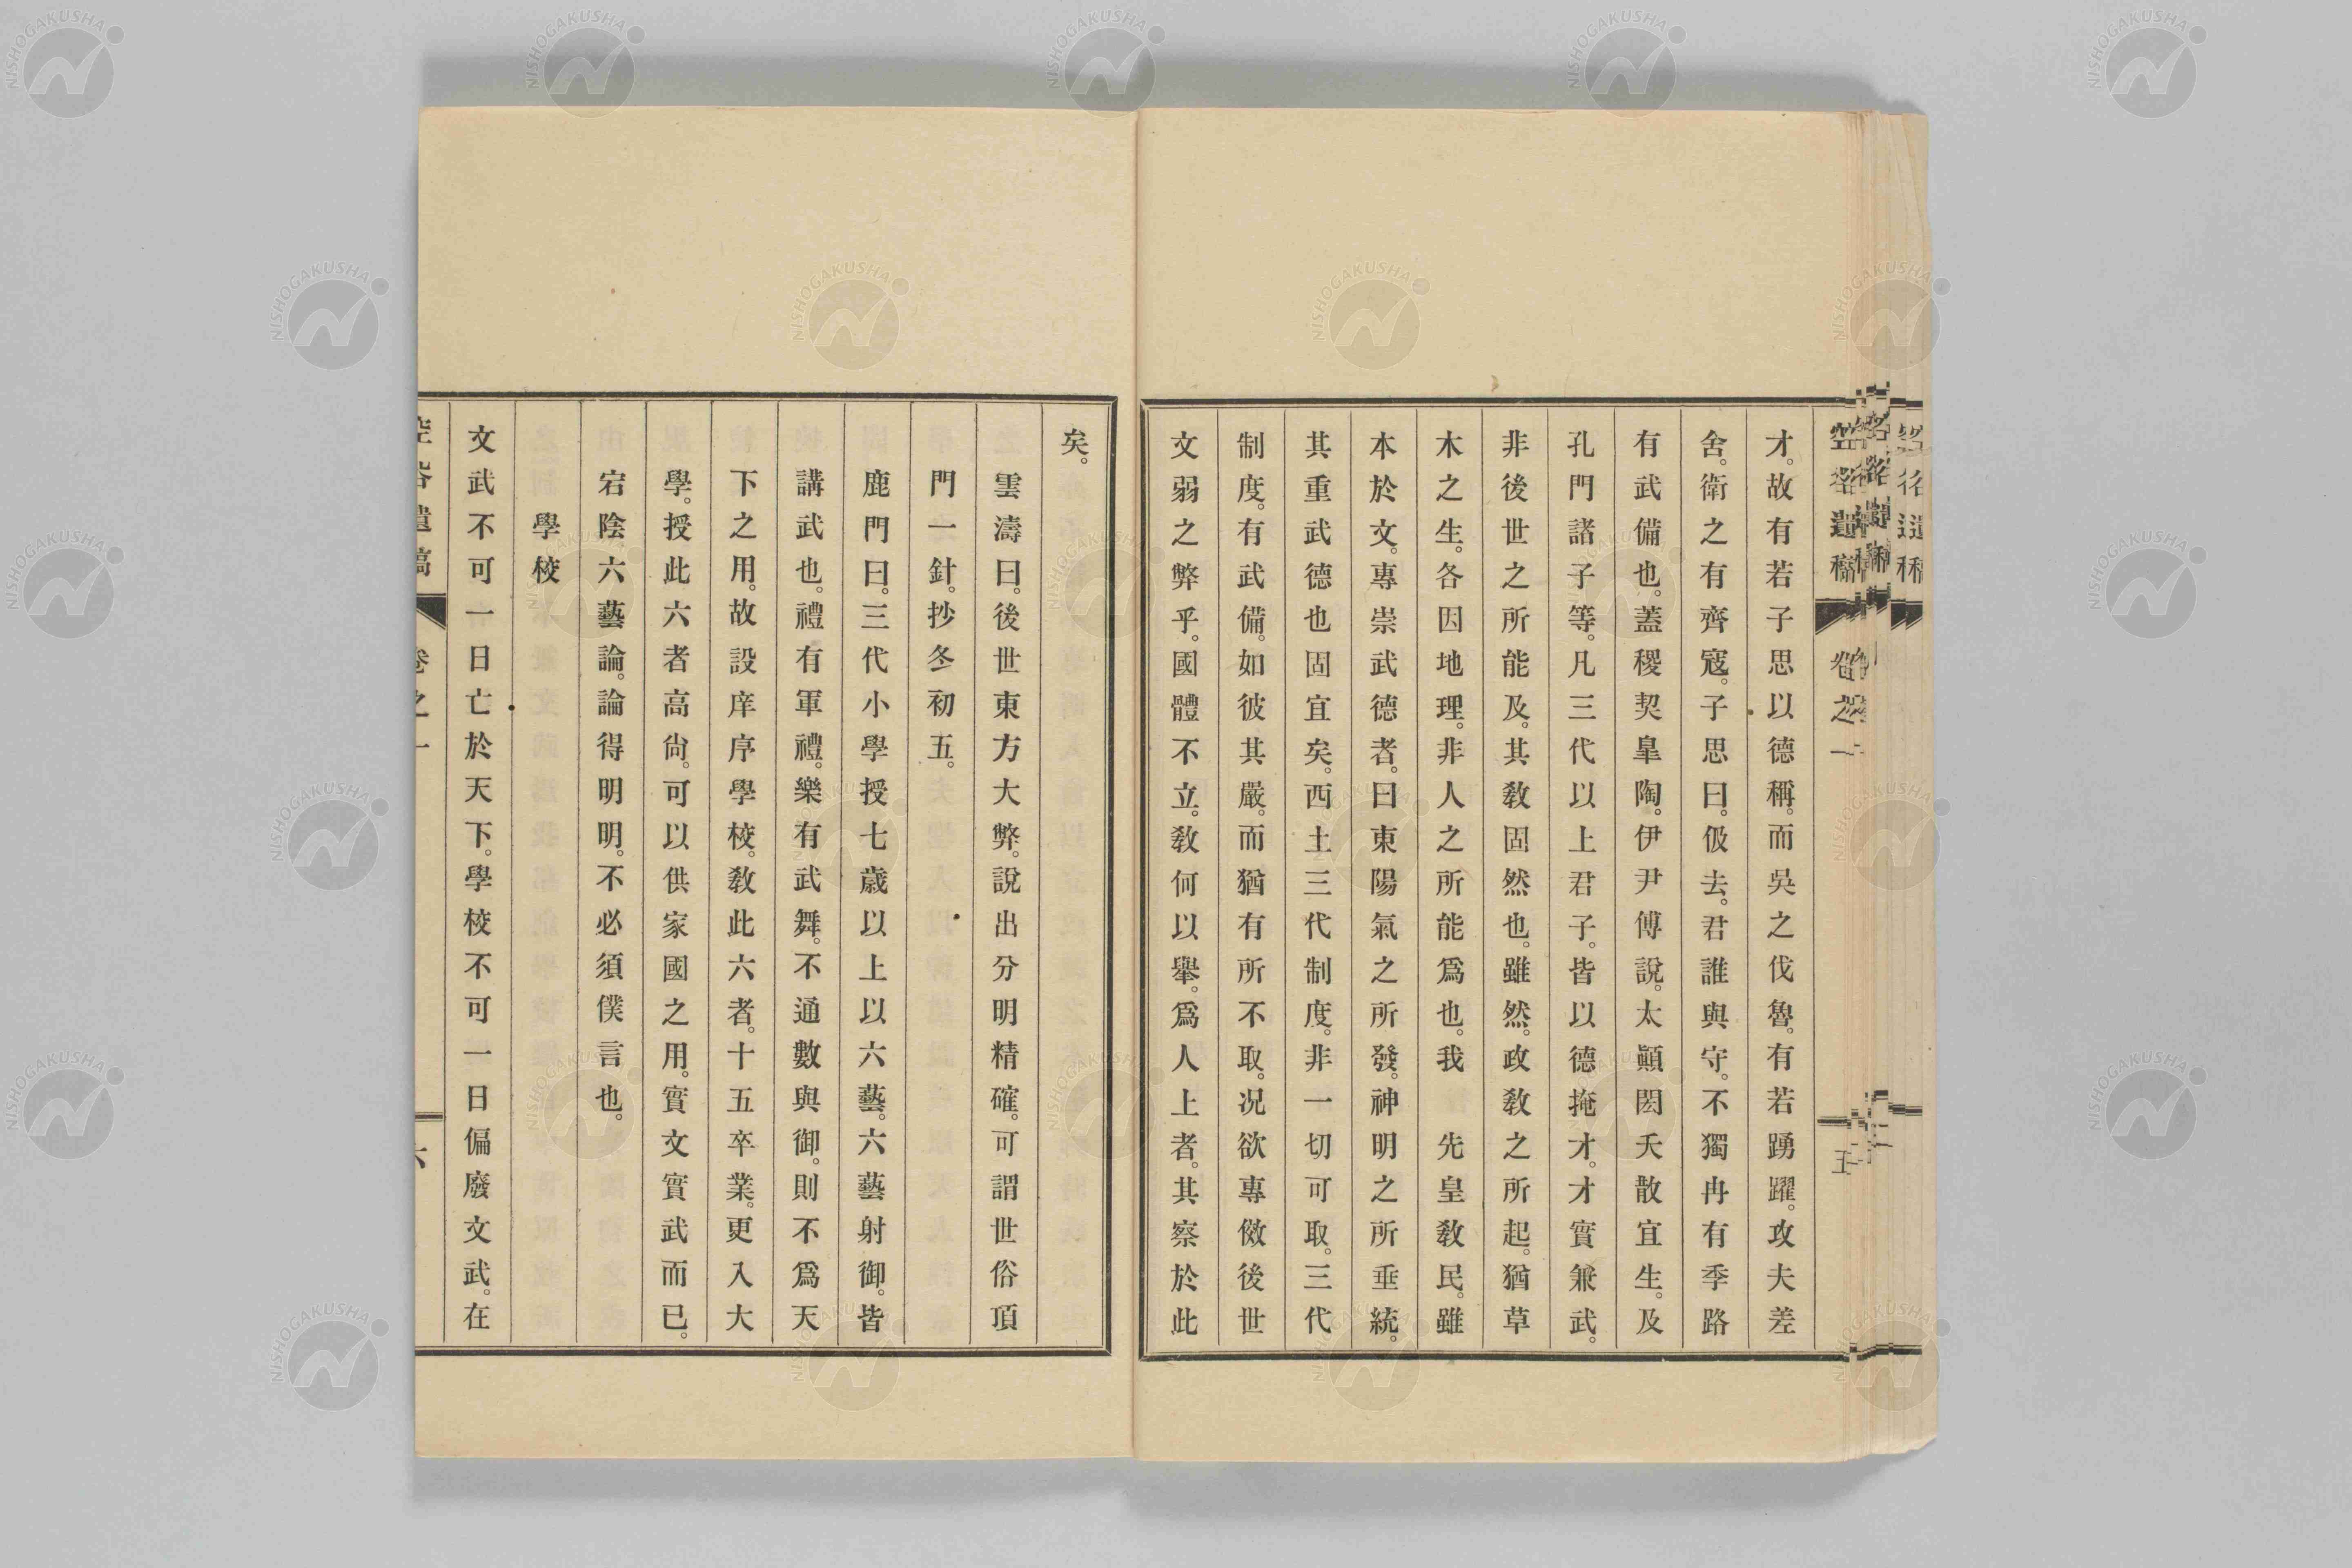 才。故有若子思以德稱。而吳之伐魯。有若踴躍。攻夫差
舍。衛之有齊寇。子思曰。伋去。君誰與守。不獨冉有季路
有武備也。蓋稷契皐陶。伊尹傅說。太顚閎夭散宜生。及
孔門諸子等。凡三代以上君子。皆以德掩才。才實兼武。
非後世之所能及。其教固然也。雖然。政教之所起。猶草
木之生。各因地理。非人之所能爲也。我 先皇教民。雖
本於文。專崇武德者。曰東陽氣之所發。神明之所垂統。
其重武德也固宜矣。西土三代制度。非一切可取。三代
制度。有武備。如彼其嚴。而猶有所不取。况欲專傚後世
文弱之弊乎。國體不立。教何以擧。爲人上者。其察於此
矣。
雲濤曰。後世東方大弊。說出分明精確。可謂世俗頂
門一針。抄冬初五。
鹿門曰。三代小學授七歲以上以六藝。六藝射御。皆
講武也。禮有軍禮。樂有武舞。不通數與御。則不爲天
下之用。故設庠序學校。教此六者。十五卒業。更入大
學。授此六者高尙。可以供家國之用。實文實武而已。
宕陰六藝論。論得明明。不必須僕言也。
學校
文武不可一日亡於天下。學校不可一日偏廢文武。在
遺稿
卷之一
六
NISHOGAKUSHA